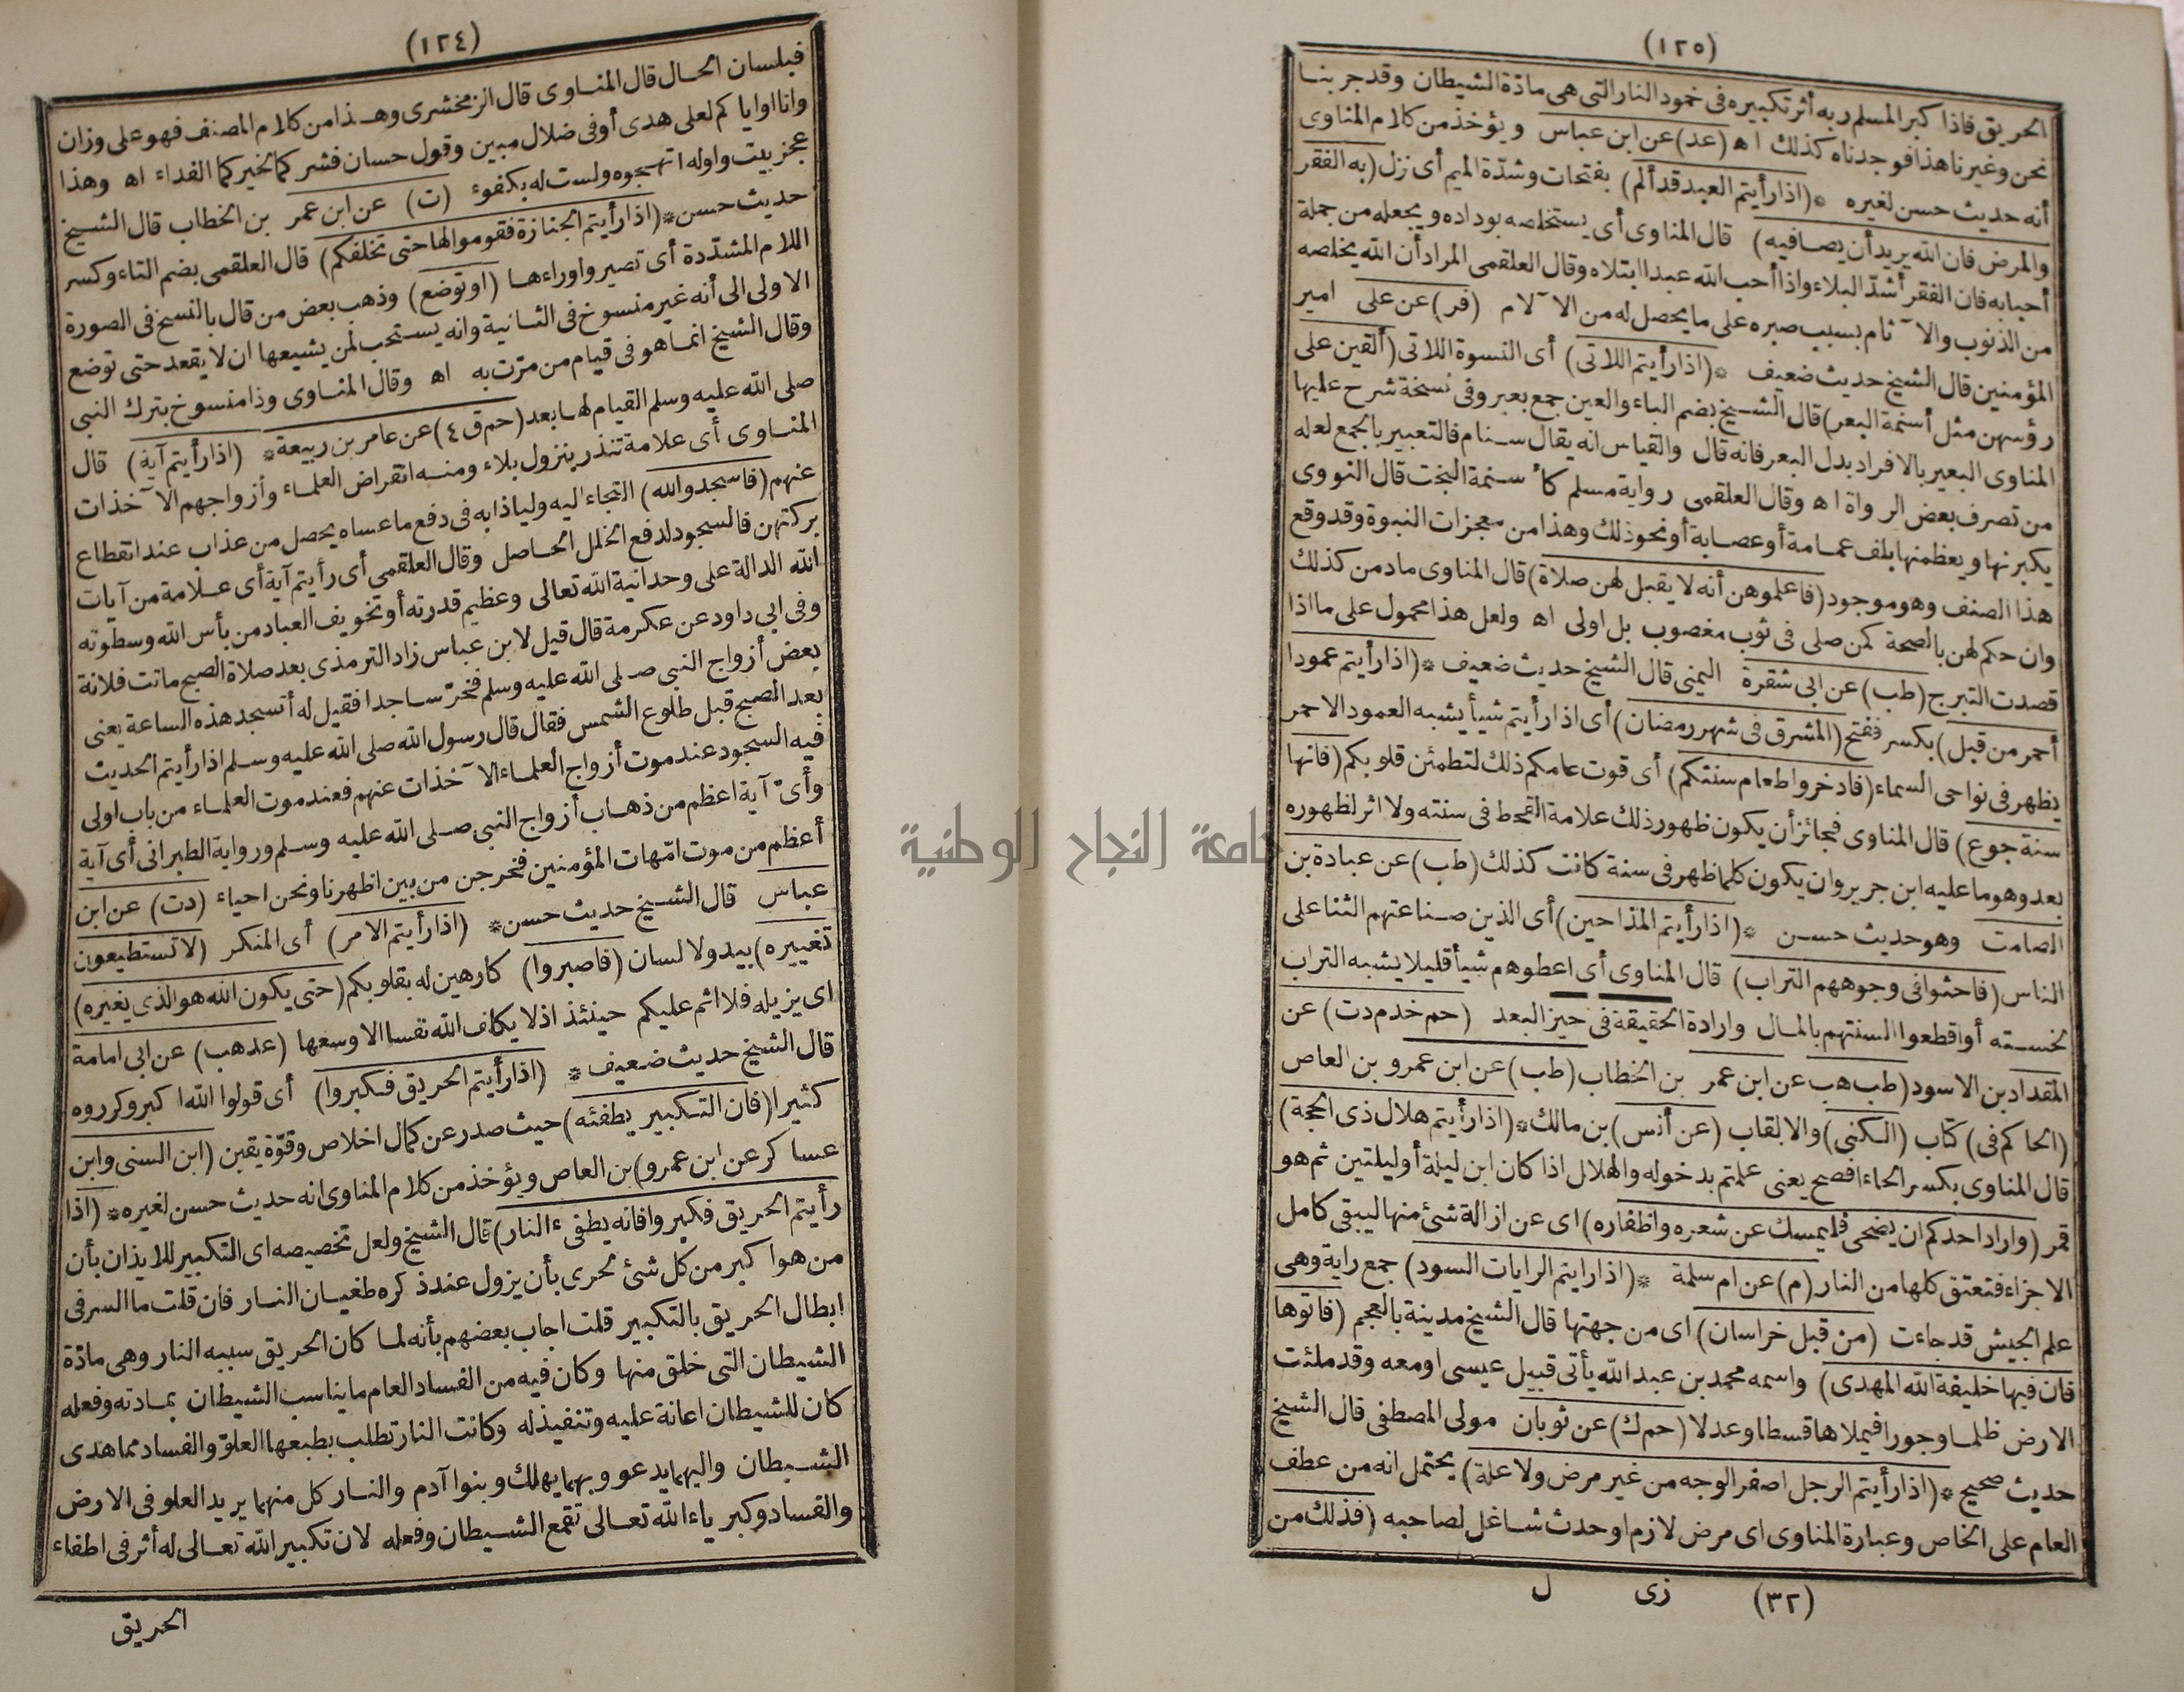 (١٢٤)
فبلسان الحال قال المناوى قال الزمخشرى وهذا من كلام المصنف فهو على وزان
وانا او اياكم لعلى هدى أو فى ضلال مبين وقول حسان فشركما لخيركما الفداء اه وهذا
عجز بيت واوله اتهجوه ولست له بكفوء (ت) عن ابن عمر بن الخطاب قال الشيخ
حديث حسن * (اذا رأيتم الجنازة فقوموا لها حتى تخلفكم) قال العلقمى بضم التاء وكسر
اللام المشدّدة أى تصيروا وراءها (او توضع) وذهب بعض من قال بالنسخ فى الصورة
الاولى الى أنه غير منسوخ فى الثانية وانه يستحب لمن يشيعها ان لا يقعد حتى توضع
وقال الشيخ انما هو فى قيام من مرّت به اه وقال المناوى وذا منسوخ بترك النبى
صلى الله عليه وسلم القيام لها بعد (حم ق ٤) عن عامر بن ربيعة * (اذا رأيتم آية) قال
المناوى أى علامة تنذر بنزول بلاء ومنه انقراض العلماء وأزواجهم الآخذات
عنهم (فاسجدوا لله) التجاء اليه ولياذا به فى دفع ما عساه يحصل من عذاب عند انقطاع
بركتهن فالسجود لدفع الخلل الحاصل وقال العلقمى أى رأيتم آية أى علامة من آيات
الله الدالة على وحدانية الله تعالى وعظيم قدرته أو تخويف العباد من بأس الله وسطوته
وفى ابى داود عن عكرمة قال قيل لابن عباس زاد الترمذى بعد صلاة الصبح ماتت فلانة
بعض أزواج النبى صلى الله عليه وسلم فخرّ ساجدا فقيل له أتسجد هذه الساعة يعنى
بعد الصبح قبل طلوع الشمس فقال قال رسول الله صلى الله عليه وسلم اذا رأيتم الحديث
فيه السجود عند موت أزواج العلماء الآخذات عنهم فعند موت العلماء من باب اولى
وأىّ آية اعظم من ذهاب أزواج النبى صلى الله عليه وسلم ورواية الطبرانى أى آية
أعظم من موت امّهات المؤمنين فخرجن من بين اظهرنا ونحن احياء (دت) عن ابن
عباس قال الشيخ حديث حسن * (اذا رأيتم الامر) أى المنكر (لا تستطيعون
تغييره) بيد ولا لسان (فاصبروا) كارهين له بقلوبكم (حتى يكون الله هو الذى يغيره)
اى يزيله فلا اثم عليكم حينئذ اذ لا يكلف الله نفسا الا وسعها (عد هب) عن ابى امامة
قال الشيخ حديث ضعيف * (اذا رأيتم الحريق فكبروا) أى قولوا الله اكبر وكرروه
كثيرا (فان التكبير يطفئه) حيث صدر عن كمال اخلاص وقوّة يقين (ابن السنى وابن
عساكر عن ابن عمرو) بن العاص ويؤخذ من كلام المناوى انه حديث حسن لغيره * (اذا
رأيتم الحريق فكبروا فانه يطفىء النار) قال الشيخ ولعل تخصيصه اى التكبير للايذان بأن
من هو اكبر من كل شئ حرى بأن يزول عند ذكره طغيان النار فان قلت ما السر فى
ابطال الحريق بالتكبير قلت اجاب بعضهم بأنه لما كان الحريق سببه النار وهى مادّة
الشيطان التى خلق منها وكان فيه من الفساد العام ما يناسب الشيطان بمادته وفعله
كان للشيطان اعانة عليه وتنفيذ له وكانت النار تطلب بطبعها العلوّ والفساد مما هدى
الشيطان واليهما يدعو وبهما يهلك وبنوا آدم والنار كل منهما يريد العلو فى الارض
والفساد وكبرياء الله تعالى تقمع الشيطان وفعله لان تكبير الله تعالى له أثر فى اطفاء
الحريق
(١٢٥)
الحريق فاذا كبر المسلم ربه أثر تكبيره فى خمود النار التى هى مادّة الشيطان وقد جربنا
نحن وغيرنا هذا فوجدناه كذلك اه (عد) عن ابن عباس ويؤخذ من كلام المناوى
أنه حديث حسن لغيره * (اذا رأيتم العبد قد ألم) بفتحات وشدّة الميم أى نزل (به الفقر
والمرض فان الله يريد أن يصافيه) قال المناوى أى يستخلصه بوداده ويجعله من جملة
أحبابه فان الفقر أشدّ البلاء واذا أحب الله عبدا ابتلاه وقال العلقمى المراد أن الله يخلصه
من الذنوب والآثام بسبب صبره على ما يحصل له من الآلام (فر) عن على امير
المؤمنين قال الشيخ حديث ضعيف * (اذا رأيتم اللاتى) أى النسوة اللاتى (ألقين على
رؤسهن مثل أسنمة البعر) قال الشيخ بضم الباء والعين جمع بعير وفى نسخة شرح عليها
المناوى البعير بالافراد بدل البعر فانه قال والقياس انه يقال سنام فالتعبير بالجمع لعله
من تصرف بعض الرواة اه وقال العلقمى رواية مسلم كأسنمة البخت قال النووى
يكبرنها ويعظمنها بلف عمامة أو عصابة أو نحو ذلك وهذا من معجزات النبوة وقد وقع
هذا الصنف وهو موجود (فاعلموهن أنه لا يقبل لهن صلاة) قال المناوى مادمن كذلك
وان حكم لهن بالصحة كمن صلى فى ثوب مغصوب بل اولى اه ولعل هذا محمول على ما اذا
قصدت التبرج (طب) عن ابى شقرة اليمنى قال الشيخ حديث ضعيف * (اذا رأيتم عمودا
أحمر من قبل) بكسر ففتح (المشرق فى شهر رمضان) أى اذا رأيتم شيأ يشبه العمود الاحمر
يظهر فى نواحى السماء (فادخروا طعام سنتكم) أى قوت عامكم ذلك لتطمئن قلوبكم (فانها
سنة جوع) قال المناوى فجائز أن يكون ظهور ذلك علامة القحط فى سنته ولا اثر لظهوره
بعد وهو ما عليه ابن جرير وان يكون كلما ظهر فى سنة كانت كذلك (طب) عن عبادة بن
الصامت وهو حديث حسن * (اذا رأيتم المدّاحين) أى الذين صناعتهم الثنا على
الناس (فاحثوا فى وجوههم التراب) قال المناوى أى اعطوهم شيأ قليلا يشبه التراب
لخسته أو اقطعوا السنتهم بالمال وارادة الحقيقة فى حيز البعد (حم خدم دت) عن
المقداد بن الاسود (طب هب عن ابن عمر بن الخطاب (طب) عن ابن عمرو بن العاص
(الحاكم فى) كتاب (الكنى) والالقاب (عن أنس) بن مالك * (اذا رأيتم هلال ذى الحجة)
قال المناوى بكسر الحاء افصح يعنى علمتم بدخوله والهلال اذا كان ابن ليلة أو ليلتين ثم هو
قمر (واراد احدكم ان يضحى فليمسك عن شعره واظفاره) اى عن ازالة شئ منها ليبقى كامل
الاجزاء فتعتق كلها من النار (م) عن ام سلمة * (اذا رايتم الرايات السود) جمع راية وهى
علم الجيش قد جاءت (من قبل خراسان) اى من جهتها قال الشيخ مدينة بالعجم (فاتوها
فان فيها خليفة الله المهدى) واسمه محمد بن عبد الله يأتى قبيل عيسى او معه وقد ملئت
الارض ظلما وجورا فيملاها قسطا وعدلا (حم ك) عن ثوبان مولى المصطفى قال الشيخ
حديث صحيح * (اذا رأيتم الرجل اصفر الوجه من غير مرض ولا علة) يحتمل انه من عطف
العام على الخاص وعبارة المناوى اى مرض لازم او حدث شاغل لصاحبه (فذلك من
(٣٢) زى ل
جامعة النجاح الوطنية